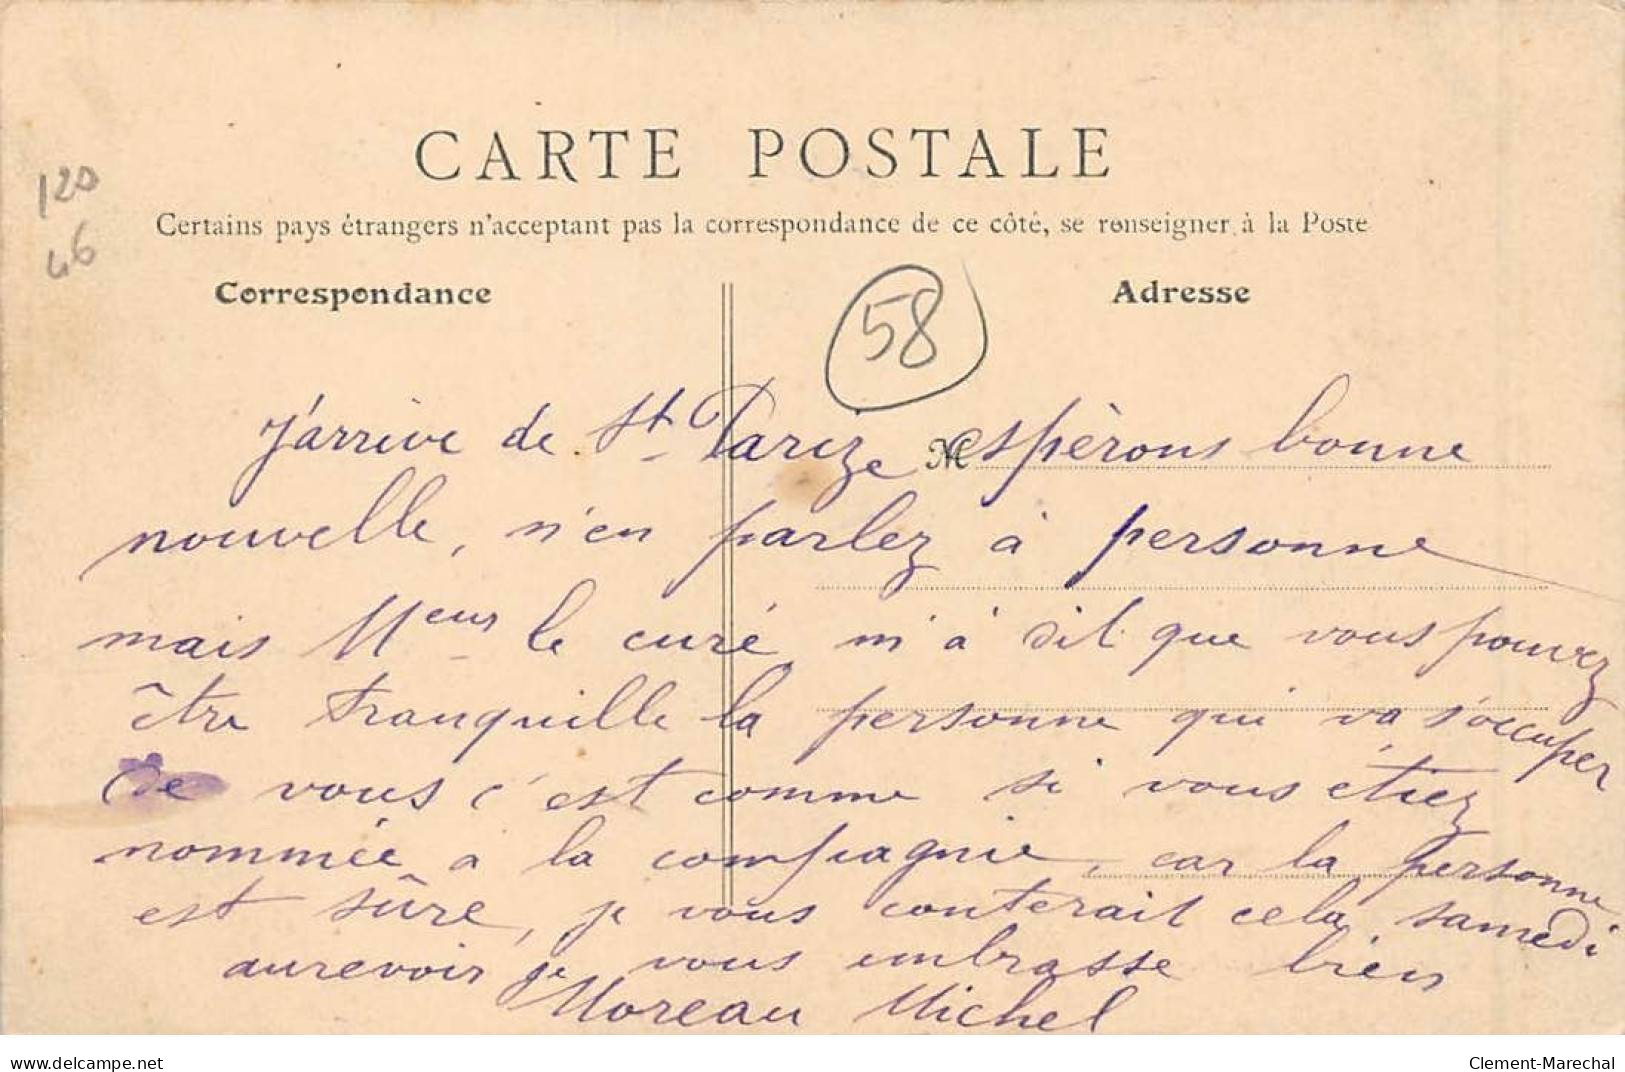 CARTE POSTALE
120
46
Certains pays étrangers n'acceptant pas la correspondance de ce côté, se renseigner à la Poste
Correspondance
Adresse
58
J'arrive de St Parize M espèrons bonne
nouvelle, n'en parlez à personne
mais Meur le curé m'à dit que vous pouvez
être tranquille la personne qui va s'occuper
de vous c'est comme si vous étiez
nommée a la compagnie, car la personne
est sûre, je vous conterait cela samedi
aurevoir je vous embrasse bien
Moreau Michel
www.delcampe.net
Clement-Marechal